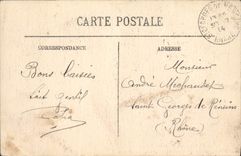 CARTE POSTALE
CORRESPONDANCE
ADRESSE
Bons baisers
sois gentil
Monsieur
André
Saint Georges de Reneins
(Rhône)